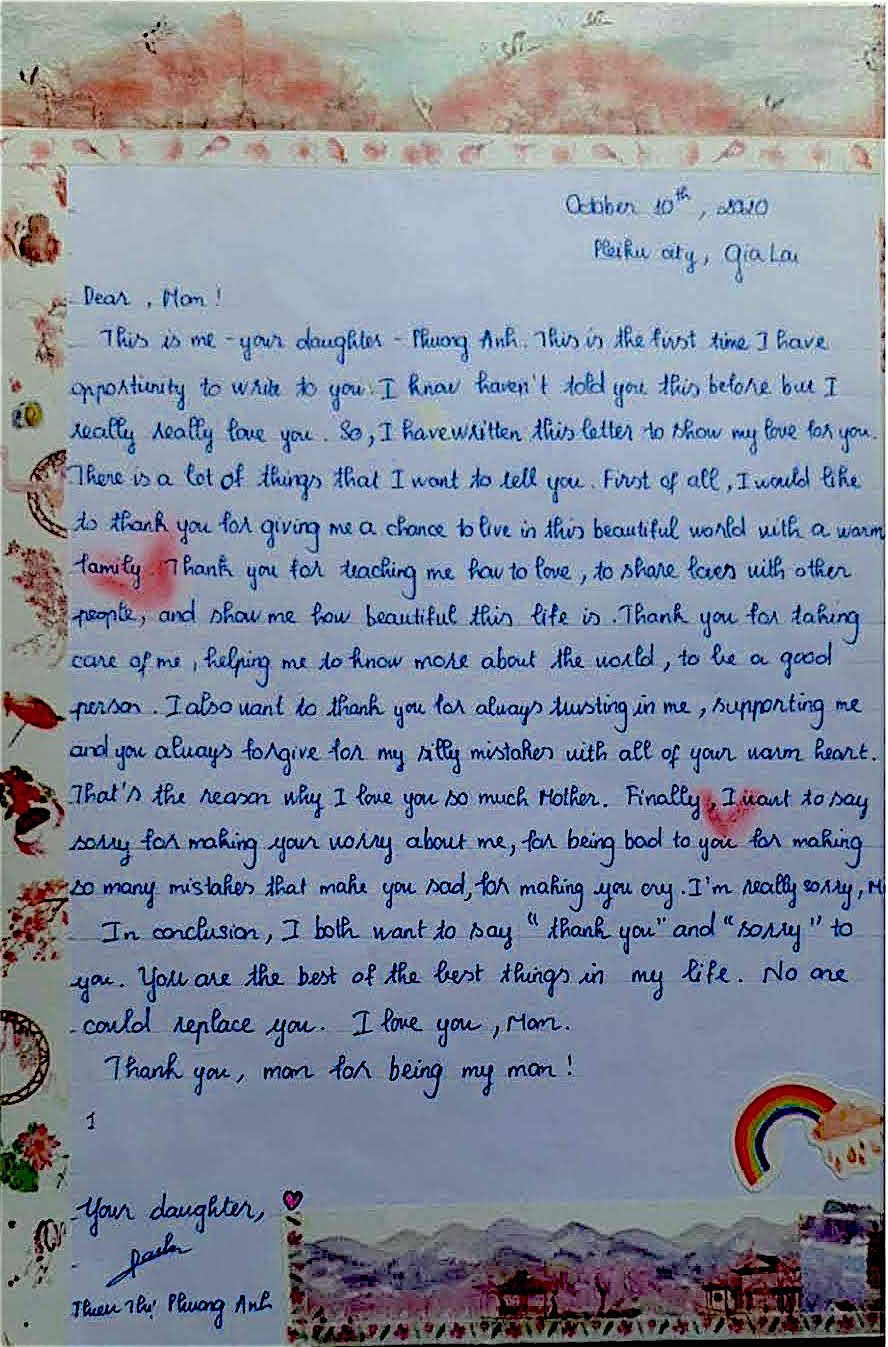 October 10th, 2020
Pleiku city, Gia Lai
Dear, Mom!
This is me - your daughter - Phuong Anh. This is the first time I have
opportunity to write to you. I know haven't told you this before but I
really really love you. So, I have written this letter to show my love for you.
There is a lot of things that I want to tell you. First of all, I would like
to thank you for giving me a chance to live in this beautiful world with a warm
family. Thank you for teaching me how to love, to share loves with other
people, and show me how beautiful this life is. Thank you for taking
care of me, helping me to know more about the world, to be a good
person. I also want to thank you for always trusting in me, supporting me
and you always forgive for my silly mistakes with all of your warm heart.
That's the reason why I love you so much Mother. Finally, I want to say
sorry for making your worry about me, for being bad to you for making
so many mistakes that make you sad, for making you cry. I'm really sorry, M
In conclusion, I both want to say "thank you" and "sorry" to
you. You are the best of the best things in my life. No one
could replace you. I love you, Mom.
Thank you, mom for being my mom!
1
Your daughter,
Thị Phuong Anh